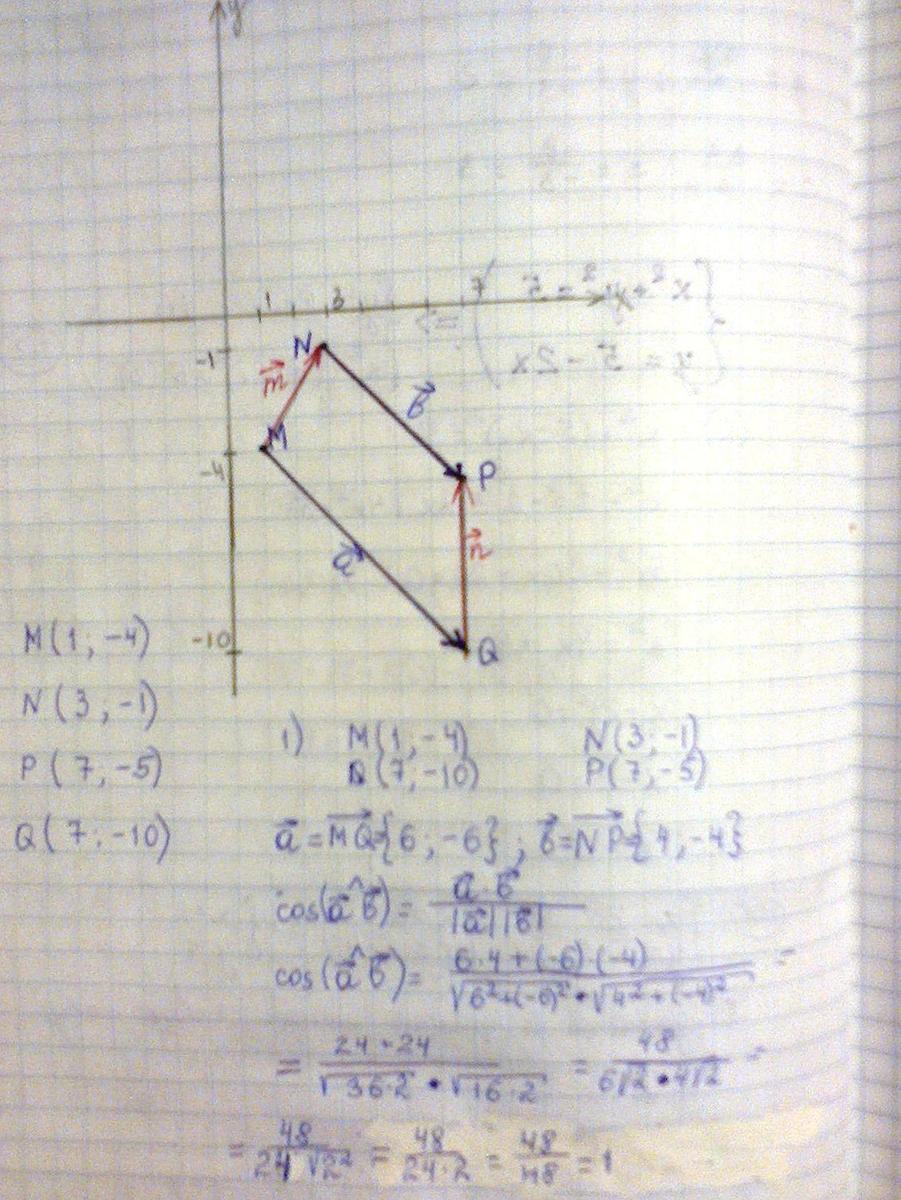 y
1 3 7
-1
N
m⃗
b⃗
M
-4
P
n⃗
a⃗
-10
Q
M(1; -4)
N(3; -1)
P(7; -5)
Q(7; -10)
1) M(1; -4) N(3; -1)
Q(7; -10) P(7; -5)
a⃗ = MQ⃗{6; -6}; b⃗ = NP⃗{4; -4}
cos(a⃗^b⃗) = a⃗·b⃗ / |a⃗||b⃗|
cos(a⃗^b⃗) = 6·4+(-6)·(-4) / √6²+(-6)² · √4²+(-4)² =
= 24+24 / √36·2 · √16·2 = 48 / 6√2 · 4√2 =
= 48 / 24√2² = 48 / 24·2 = 48 / 48 = 1